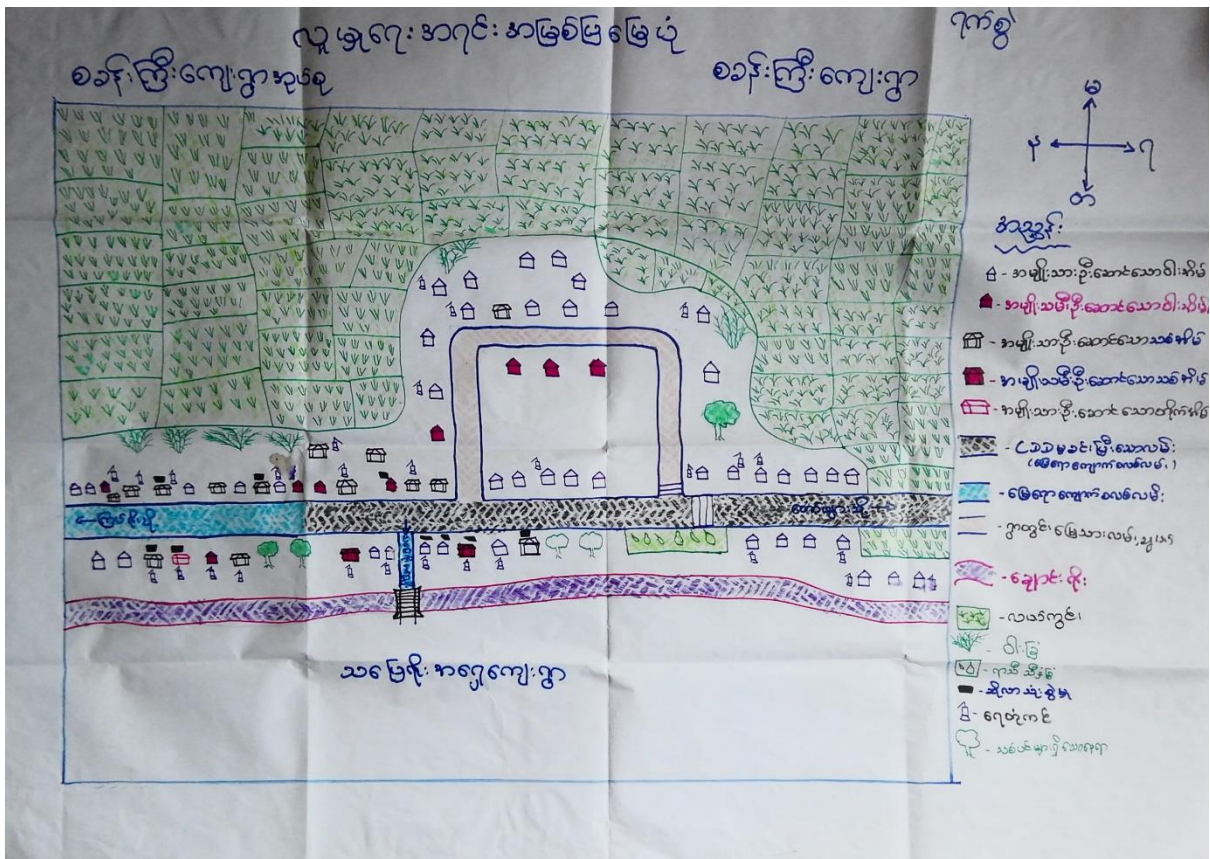 လူမှုရေး အရင်း အမြစ်ပြ မြေပုံ
ရက်စွဲ
စခန်းကြီးကျေးရွာအုပ်စု
စခန်းကြီးကျေးရွာ
မ
န
ရ
တ
အညွှန်း
- အမျိုးသားဦးဆောင်သောဝါးအိမ်
- အမျိုးသမီးဦးဆောင်သောဝါးအိမ်
- အမျိုးသားဦးဆောင်သောသစ်အိမ်
- အမျိုးသမီးဦးဆောင်သောသစ်အိမ်
- အမျိုးသားဦးဆောင်သောတိုက်အိမ်
ခင်းပြီးသောလမ်း
- မြေရောကျောက်စလစ်လမ်း
- ရွာတွင်းမြေသားလမ်း
- ချောင်းရိုး
- လယ်ကွင်း
- ဝါးခြံ
- ရာသီသီးနှံခြံ
- ဆိုလာသုံးစွဲမှု
- ရေတုံကင်
- သစ်ပင်များရှိသောနေရာ
သမြေရိုး အရှေ့ကျေးရွာ